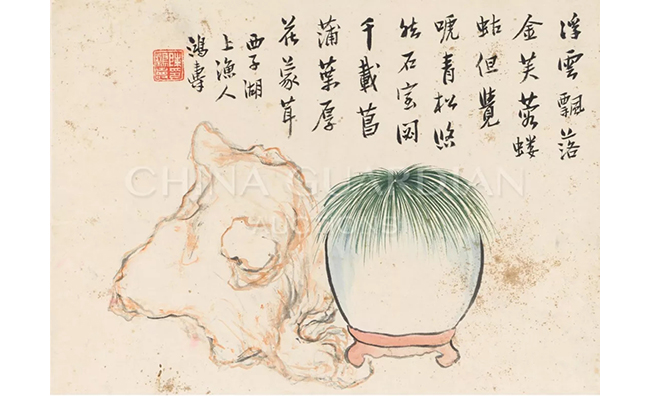 浮雲飄落
金芙蓉螻
蛄但覺
號青松悠
然石室
千載菖
蒲葉厚
花蒙茸
西子湖
上漁人
鴻壽
CHINA GUARDIAN
AUCTIONS